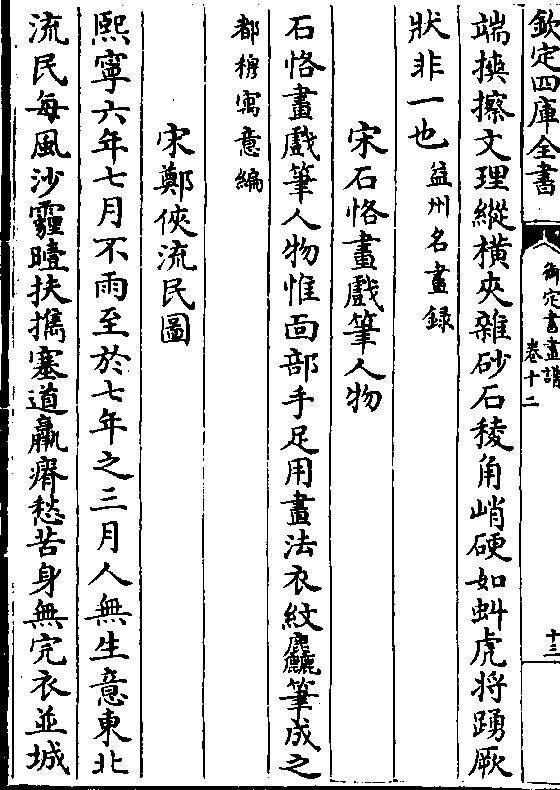 欽定四庫全書
御定書畫譜
卷十二
十三
端揳擦文理縱橫夾雜砂石稜角峭硬如虯虎将踴厥
狀非一也益州名畫録
宋石恪畫戲筆人物
石恪畫戲筆人物惟面部手足用畫法衣紋麤筆成之
都穆寓意編
宋鄭俠流民圖
熙寧六年七月不雨至於七年之三月人無生意東北
流民每風沙霾曀扶攜塞道羸瘠愁苦身無完衣並城